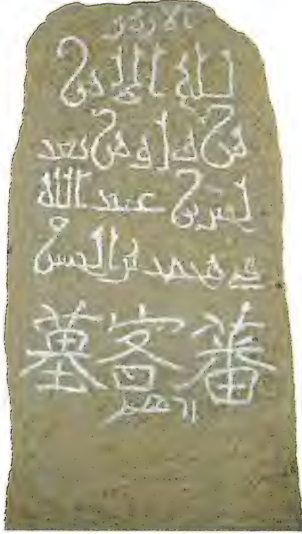 لله الامر من
قبل ومن بعد
عبد الله
بن محمد بن الحسن
蕃客墓